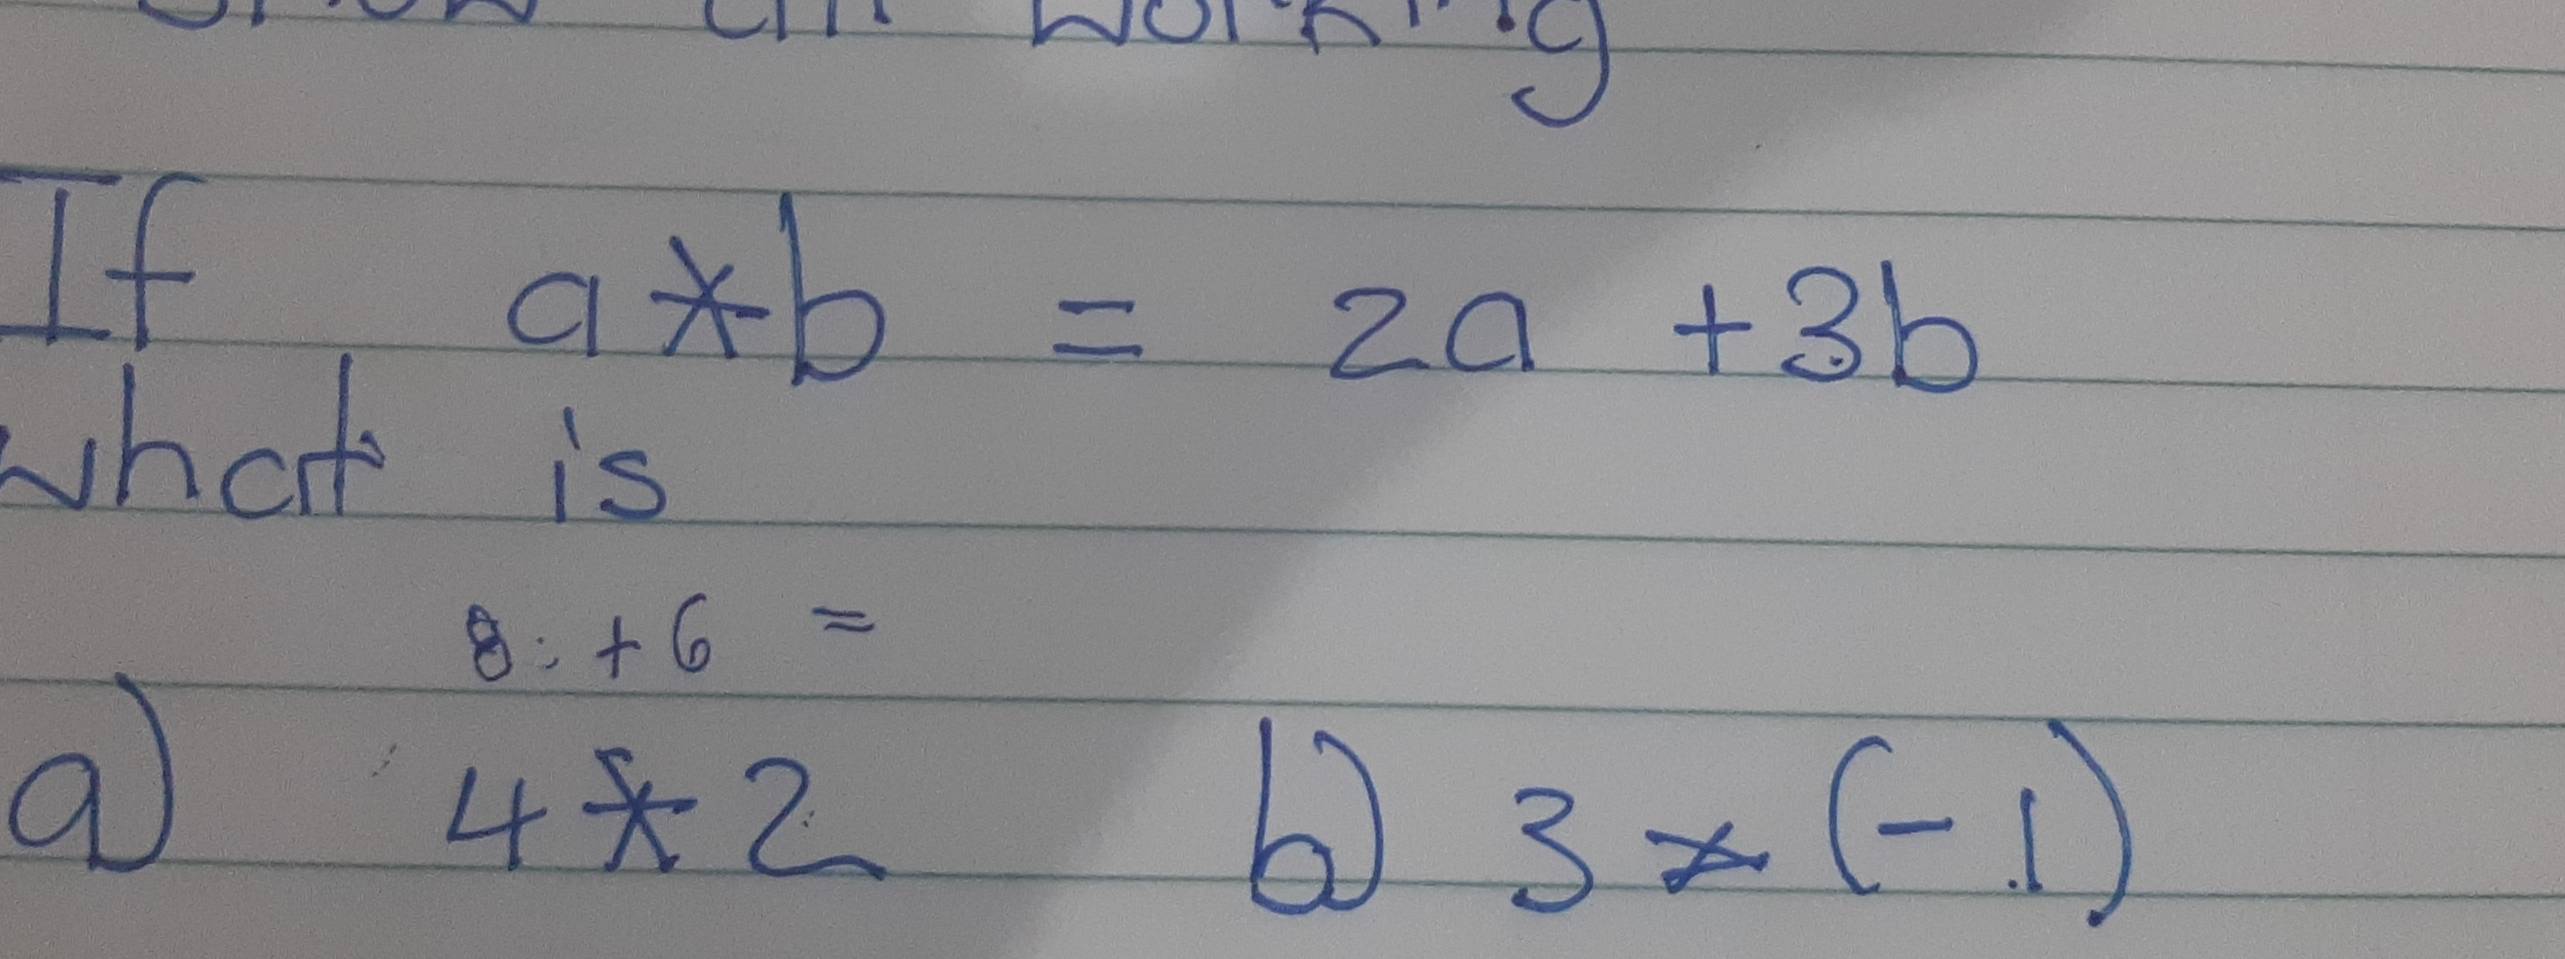 working
If a*b = 2a +3b
what is
8 + 6 =
a) 4*2 b) 3 * (-1)